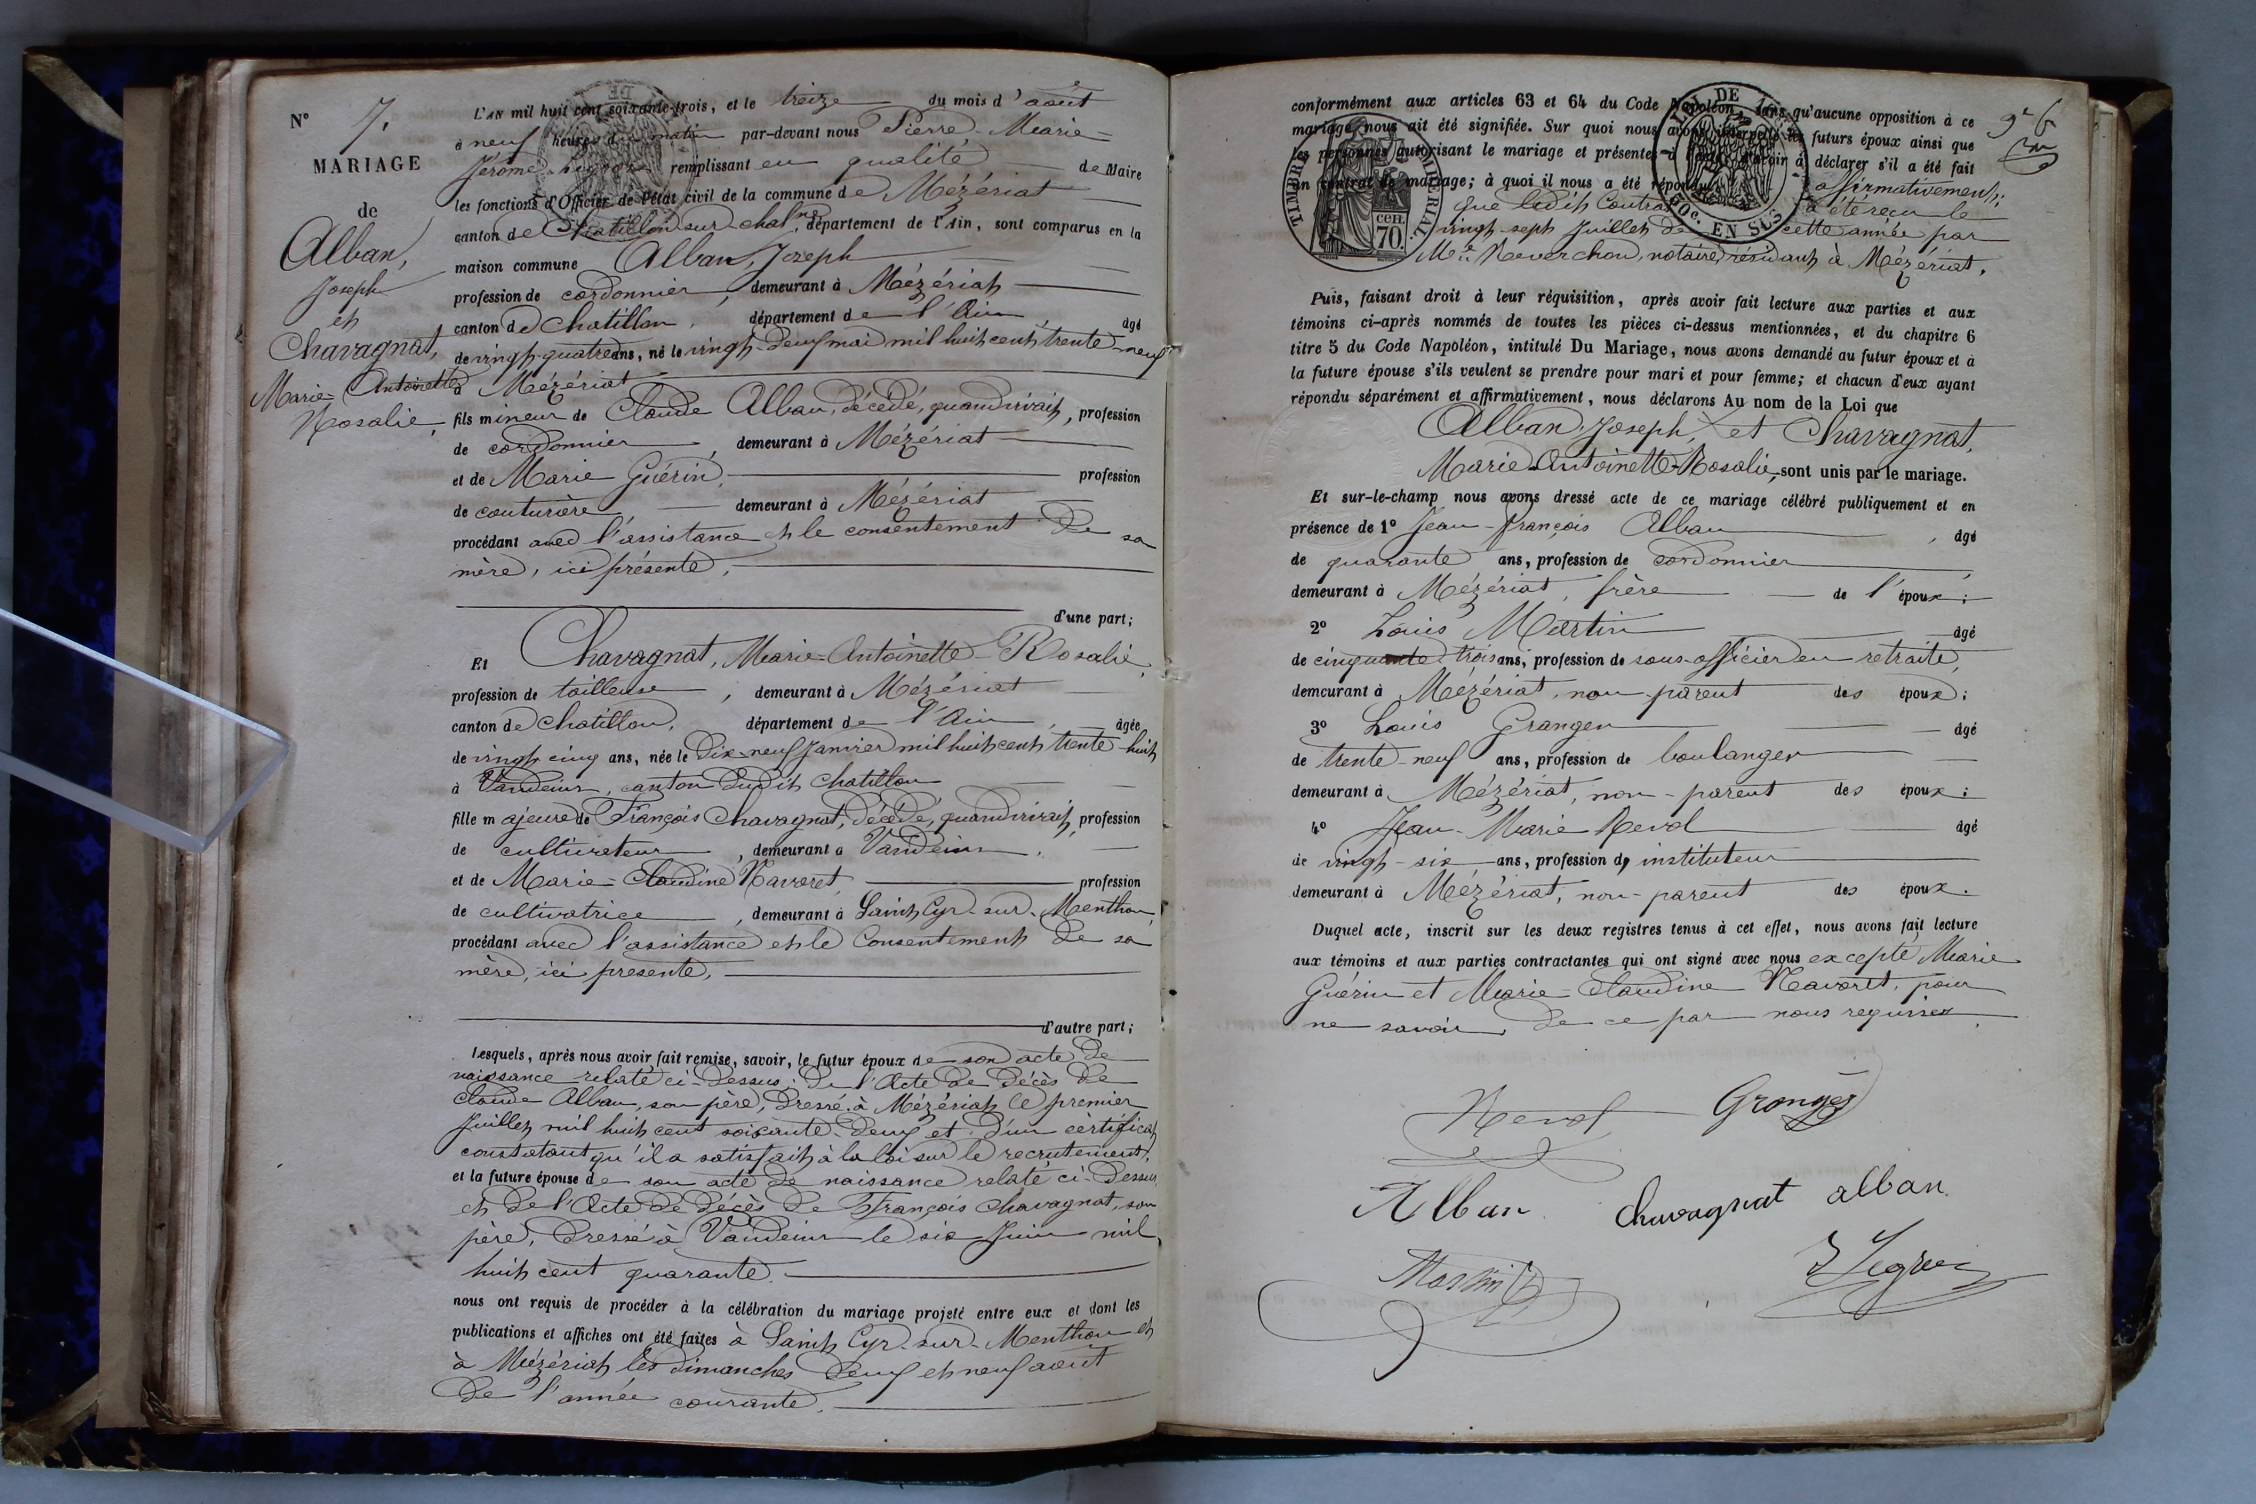 N° 7.
MARIAGE
de
Alban,
Joseph
et
Chavagnat,
Marie-Antoinette
Rosalie,
L'AN mil huit cent soixante-trois, et le treize du mois d'août
à neuf heures du matin par-devant nous Pierre-Marie-
Jérôme remplissant en qualité de Maire
les fonctions d'Officier de l'état civil de la commune de Mézériat
canton de Chatillon-sur-chalne, département de l'Ain, sont comparus en la
maison commune Alban, Joseph
profession de cordonnier, demeurant à Mézériat
canton de Chatillon, département de l'Ain, âgé
de vingt-quatre ans, né le vingt-deux mai mil huit cent trente-neuf
à Mézériat
fils mineur de Claude Alban, décédé, quand vivait, profession
de cordonnier, demeurant à Mézériat
et de Marie Guérin, profession
de couturière, demeurant à Mézériat
procédant avec l'assistance et le consentement de sa
mère, ici présente,
d'une part;
Et Chavagnat, Marie-Antoinette-Rosalie,
profession de tailleuse, demeurant à Mézériat
canton de Chatillon, département de l'Ain, âgée
de vingt cinq ans, née le Dix-neuf Janvier mil huit cent trente-huit
à Vandeins, canton dudit Chatillon
fille majeure de François Chavagnat, décédé, quand vivait, profession
de cultivateur, demeurant à Vandeins,
et de Marie-Claudine Navoret, profession
de cultivatrice, demeurant à Saint Cyr-sur-Menthon,
procédant avec l'assistance et le Consentement de sa
mère, ici présente,
d'autre part;
Lesquels, après nous avoir fait remise, savoir, le futur époux de son acte de
naissance relaté ci-Dessus; De l'Acte de Décès de
Claude Alban, son père, Dressé à Mézériat le premier
Juillet mil huit cent soixante-Deux et d'un certificat
constatant qu'il a satisfait à la loi sur le recrutement,
et la future épouse de son acte de naissance relaté ci-Dessus
et De l'Acte de Décès de François Chavagnat, son
père, Dressé à Vandeins le six Juin mil
huit cent quarante.
nous ont requis de procéder à la célébration du mariage projeté entre eux et dont les
publications et affiches ont été faites à Saint Cyr-sur-Menthon et
à Mézériat les dimanches Deux et neuf août
De l'année courante.
conformément aux articles 63 et 64 du Code Napoléon, sans qu'aucune opposition à ce
mariage nous ait été signifiée. Sur quoi nous avons interpellé les futurs époux ainsi que
les personnes autorisant le mariage et présentes à l'acte d'avoir à déclarer s'il a été fait
un contrat de mariage; à quoi il nous a été répondu affirmativement;
que ledit Contrat a été reçu le
vingt-sept Juillet de cette année par
Me Neverchon, notaire, résidant à Mézériat.
TIMBRE IMPÉRIAL
CEN.
70.
LOI DE
10e. EN SUS
Puis, faisant droit à leur réquisition, après avoir fait lecture aux parties et aux
témoins ci-après nommés de toutes les pièces ci-dessus mentionnées, et du chapitre 6
titre 5 du Code Napoléon, intitulé Du Mariage, nous avons demandé au futur époux et à
la future épouse s'ils veulent se prendre pour mari et pour femme; et chacun d'eux ayant
répondu séparément et affirmativement, nous déclarons Au nom de la Loi que
Alban, Joseph, et Chavagnat,
Marie-Antoinette-Rosalie, sont unis par le mariage.
Et sur-le-champ nous avons dressé acte de ce mariage célébré publiquement et en
présence de 1° Jean-François Alban, âgé
de quarante ans, profession de cordonnier
demeurant à Mézériat, frère de l'époux;
2° Louis Martin âgé
de cinquante trois ans, profession de sous-officier en retraite,
demeurant à Mézériat, non-parent des époux;
3° Louis Granger âgé
de trente-neuf ans, profession de boulanger
demeurant à Mézériat, non-parent des époux;
4° Jean-Marie Revol âgé
de vingt-six ans, profession d'instituteur
demeurant à Mézériat, non-parent des époux.
Duquel acte, inscrit sur les deux registres tenus à cet effet, nous avons fait lecture
aux témoins et aux parties contractantes qui ont signé avec nous excepté Marie
Guérin et Marie-Claudine Navoret, pour
ne savoir, De ce par nous requises.
Revol Granger
Alban chavagnat alban
Martin